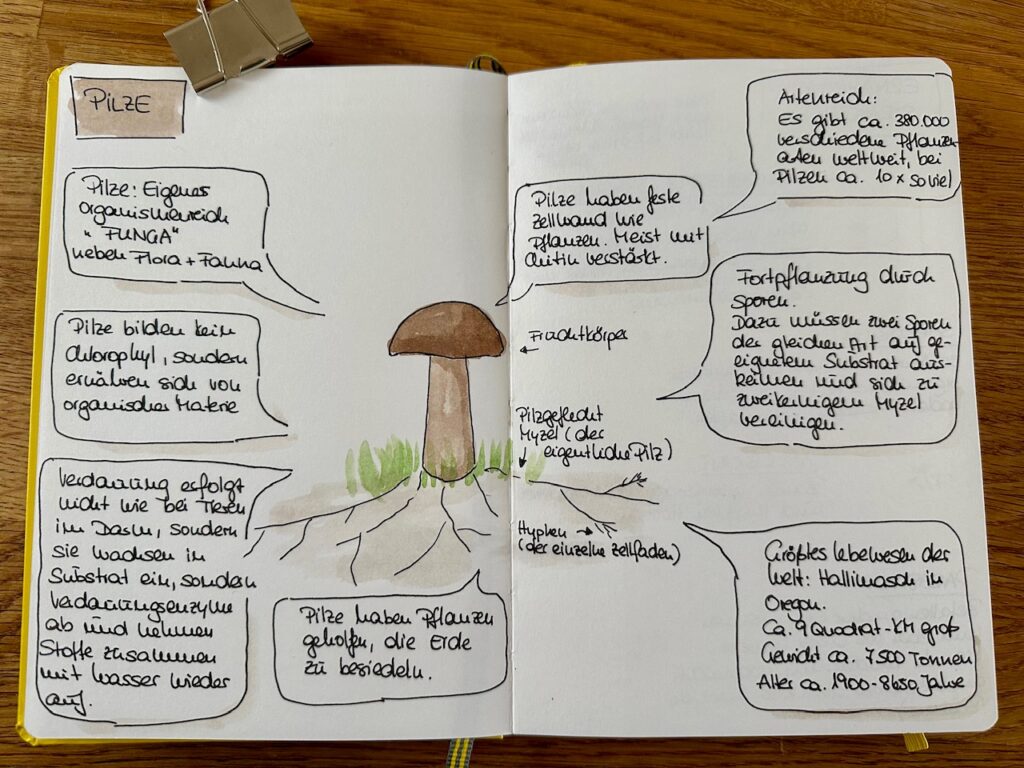 PILZE
Pilze: Eigenes
organismenreich
"FUNGA"
neben Flora + Fauna
Pilze bilden kein
chlorophyl, sondern
ernähren sich von
organischer Materie
Verdauung erfolgt
nicht wie bei Tieren
im Darm, sondern
sie wachsen in
Substrat ein, sondern
Verdauungsenzyme
ab und nehmen
Stoffe zusammen
mit Wasser wieder
auf.
Pilze haben Pflanzen
geholfen, die Erde
zu besiedeln.
Pilze haben feste
Zellwand wie
Pflanzen. Meist mit
Chitin verstärkt.
Fruchtkörper
Pilzgeflecht
Myzel (der
eigentliche Pilz)
Hyphen
(der einzelne Zellfaden)
Artenreich:
Es gibt ca. 380.000
verschiedene Pflanzen-
arten weltweit, bei
Pilzen ca. 10 x so viel
Fortpflanzung durch
Sporen.
Dazu müssen zwei Sporen
der gleichen Art auf ge-
eignetem Substrat aus-
keimen und sich zu
zweikernigem Myzel
vereinigen.
Größtes Lebewesen der
Welt: Hallimasch in
Oregon.
Ca. 9 Quadrat-KM groß
Gewicht ca. 7500 Tonnen
Alter ca. 1900-8650 Jahre